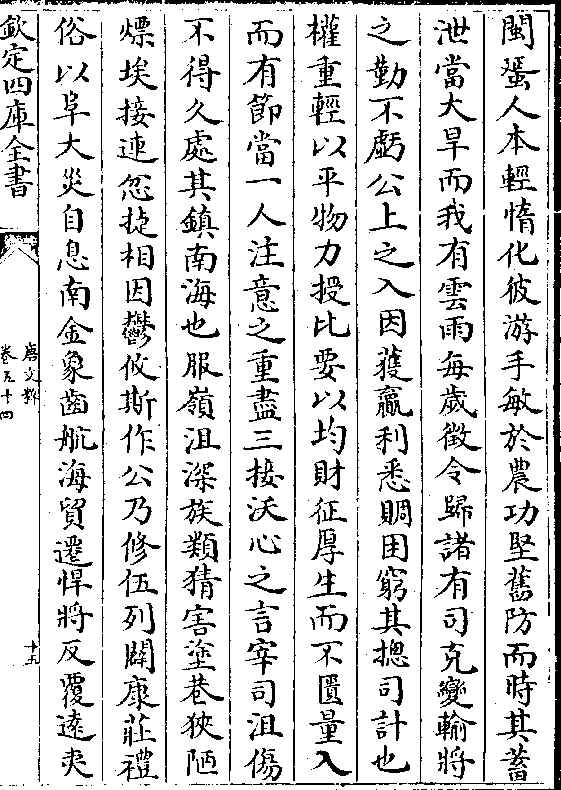 閩蜑人本輕惰化彼游手敏於農功堅舊防而時其蓄
泄當大旱而我有雲雨每歲徵令歸諸有司克變輸將
之勤不虧公上之入因獲羸利悉賙困窮其揔司計也
權重輕以平物力授比要以均財征厚生而不匱量入
而有節當一人注意之重盡三接沃心之言宰司沮傷
不得久處其鎮南海也服嶺沮深族類猜害塗巷狹陋
熛埃接連忽㨗相因鬱攸斯作公乃修伍列闢康莊禮
俗以阜大災自息南金象齒航海貿遷悍將反覆遠夷
欽定四庫全書
唐文粹
卷五十四
十五